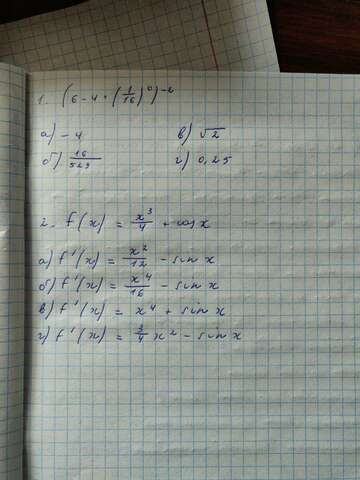 1. (6-4·(1/16)⁰)⁻²
а) -4 в) √2
б) 16/529 г) 0,25
2. f(x) = x³/4 + cos x
а) f'(x) = x²/12 - sin x
б) f'(x) = x⁴/16 - sin x
в) f'(x) = x⁴ + sin x
г) f'(x) = 3/4 x² - sin x